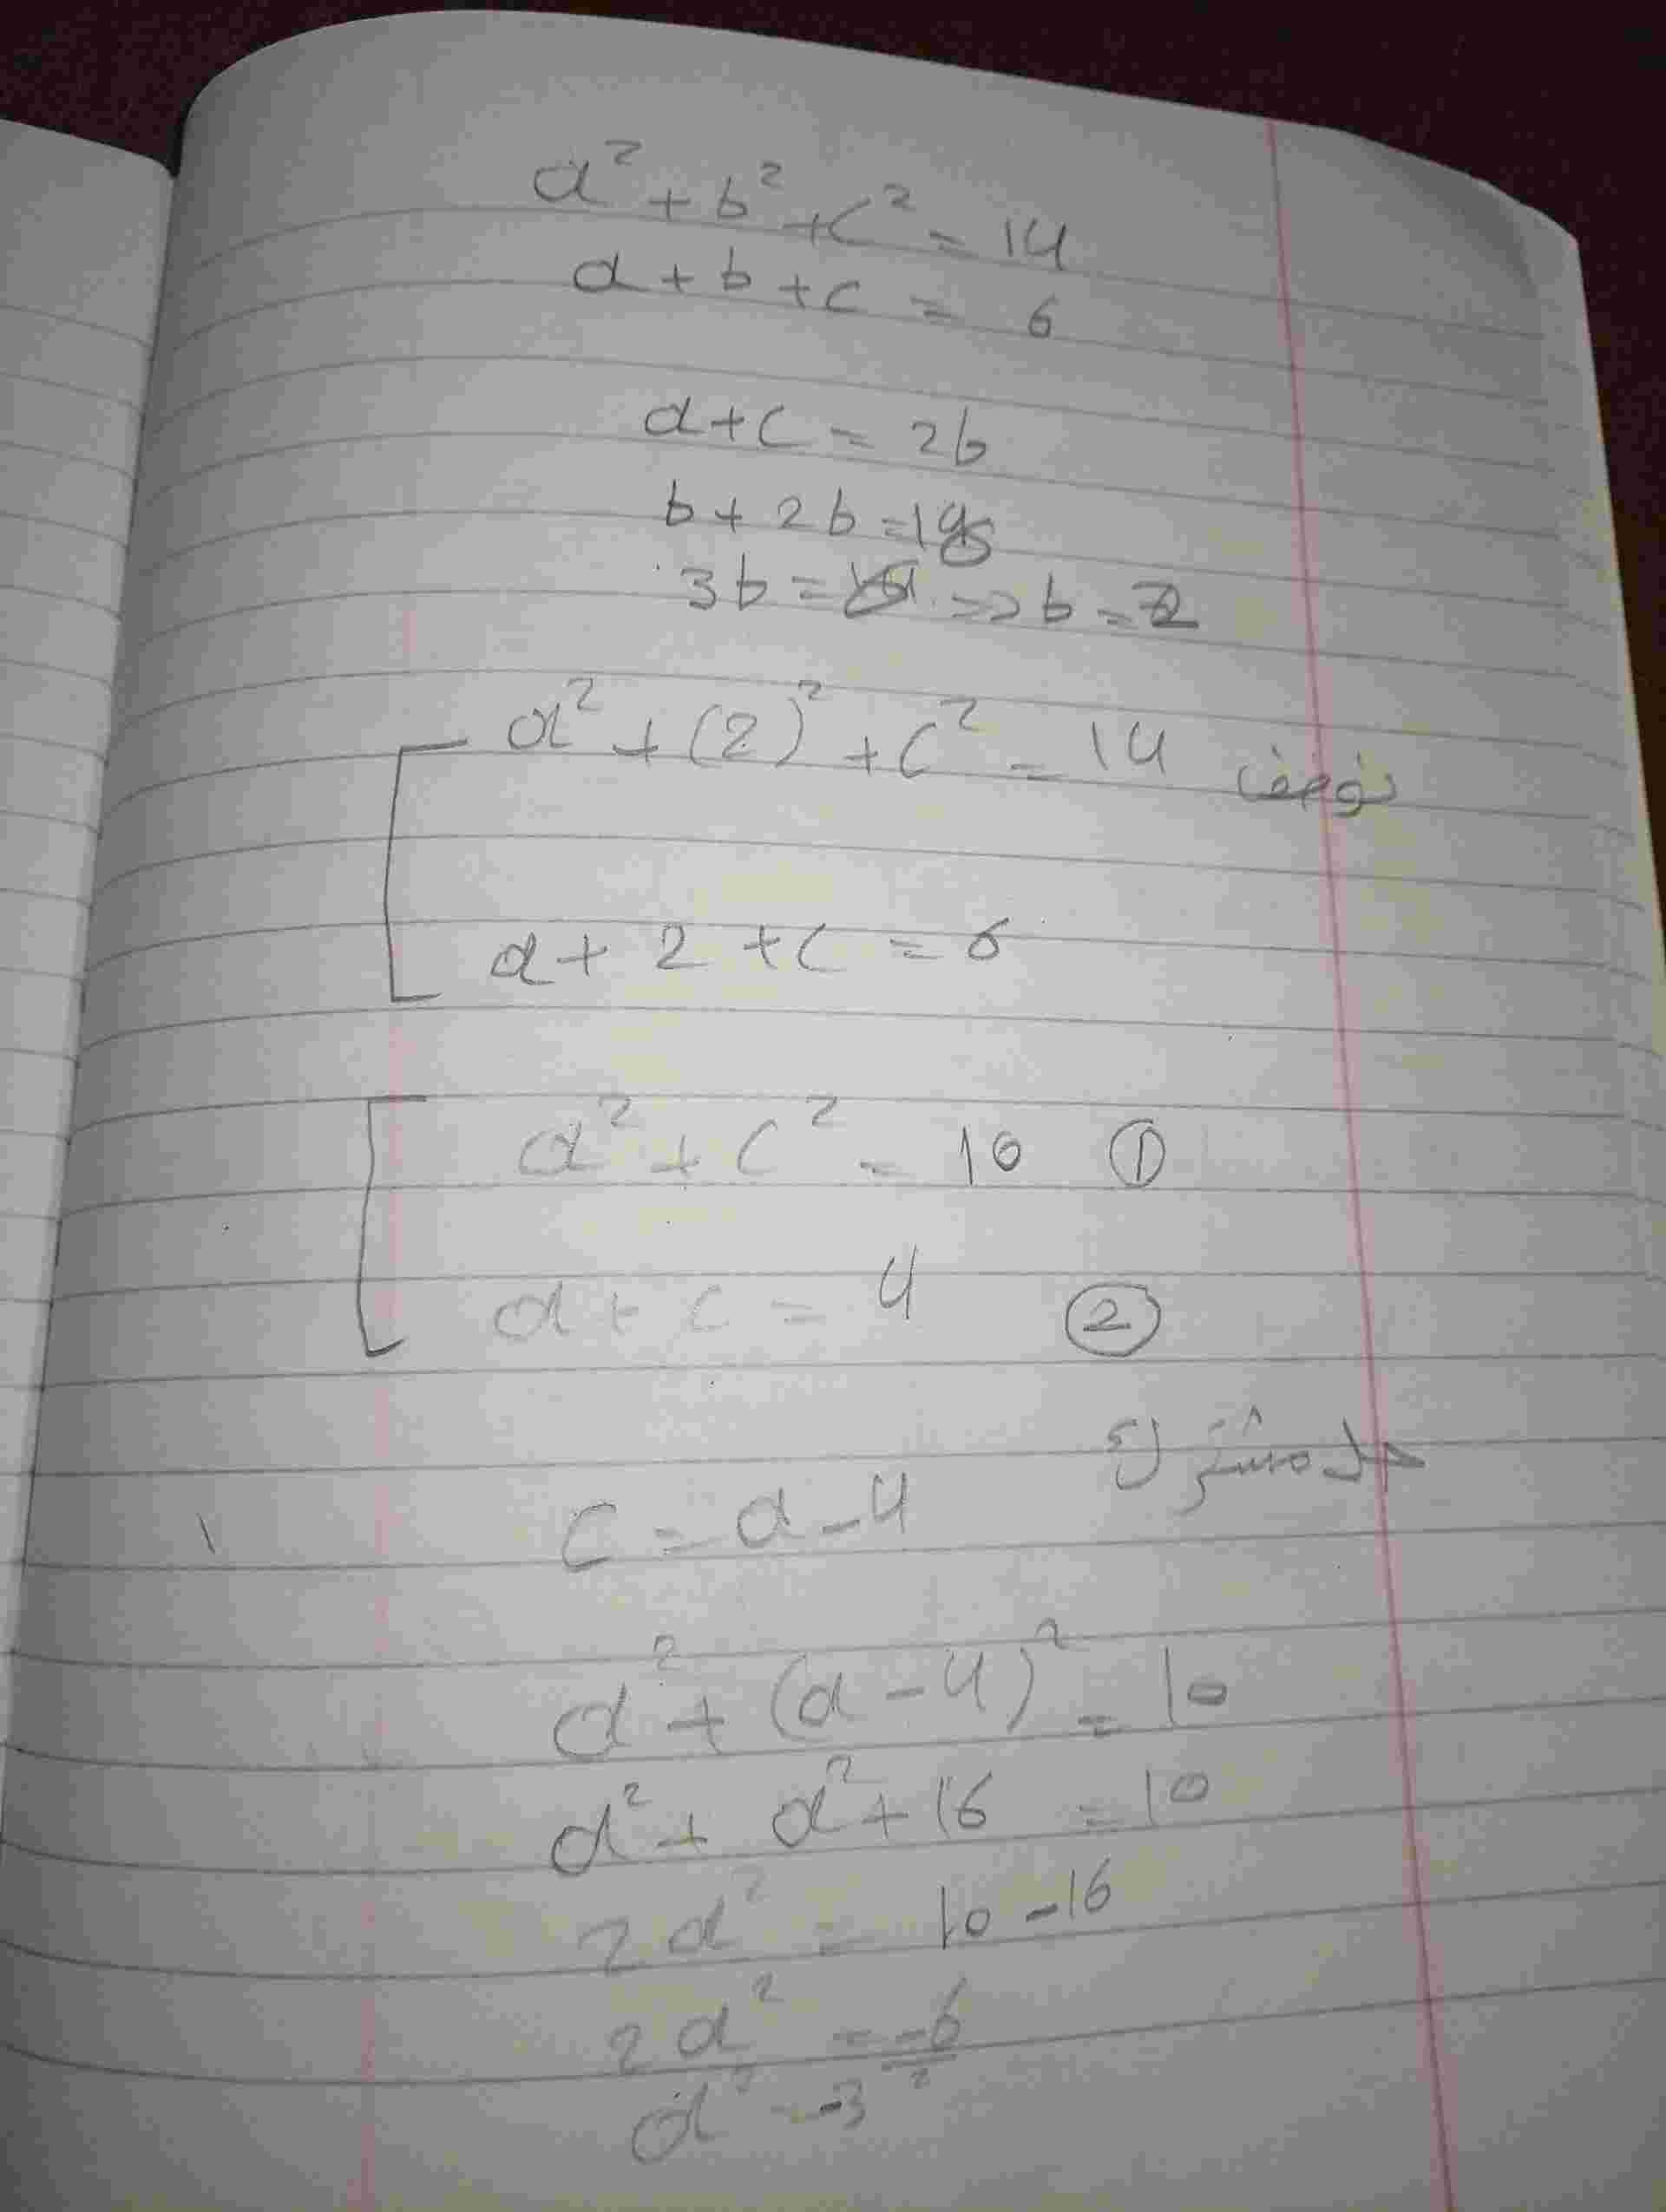 a² + b² + c² = 14
a + b + c = 6
a + c = 2b
b + 2b =
3b = => b = 2
a² + (2)² + c² = 14 نوضف
a + 2 + c = 6
a² + c² = 10 ①
a + c = 4 ②
حل مشترك
c = a - 4
a² + (a - 4)² = 10
a² + a² + 16 = 10
2a² = 10 - 16
2a² = -6
a² = -3